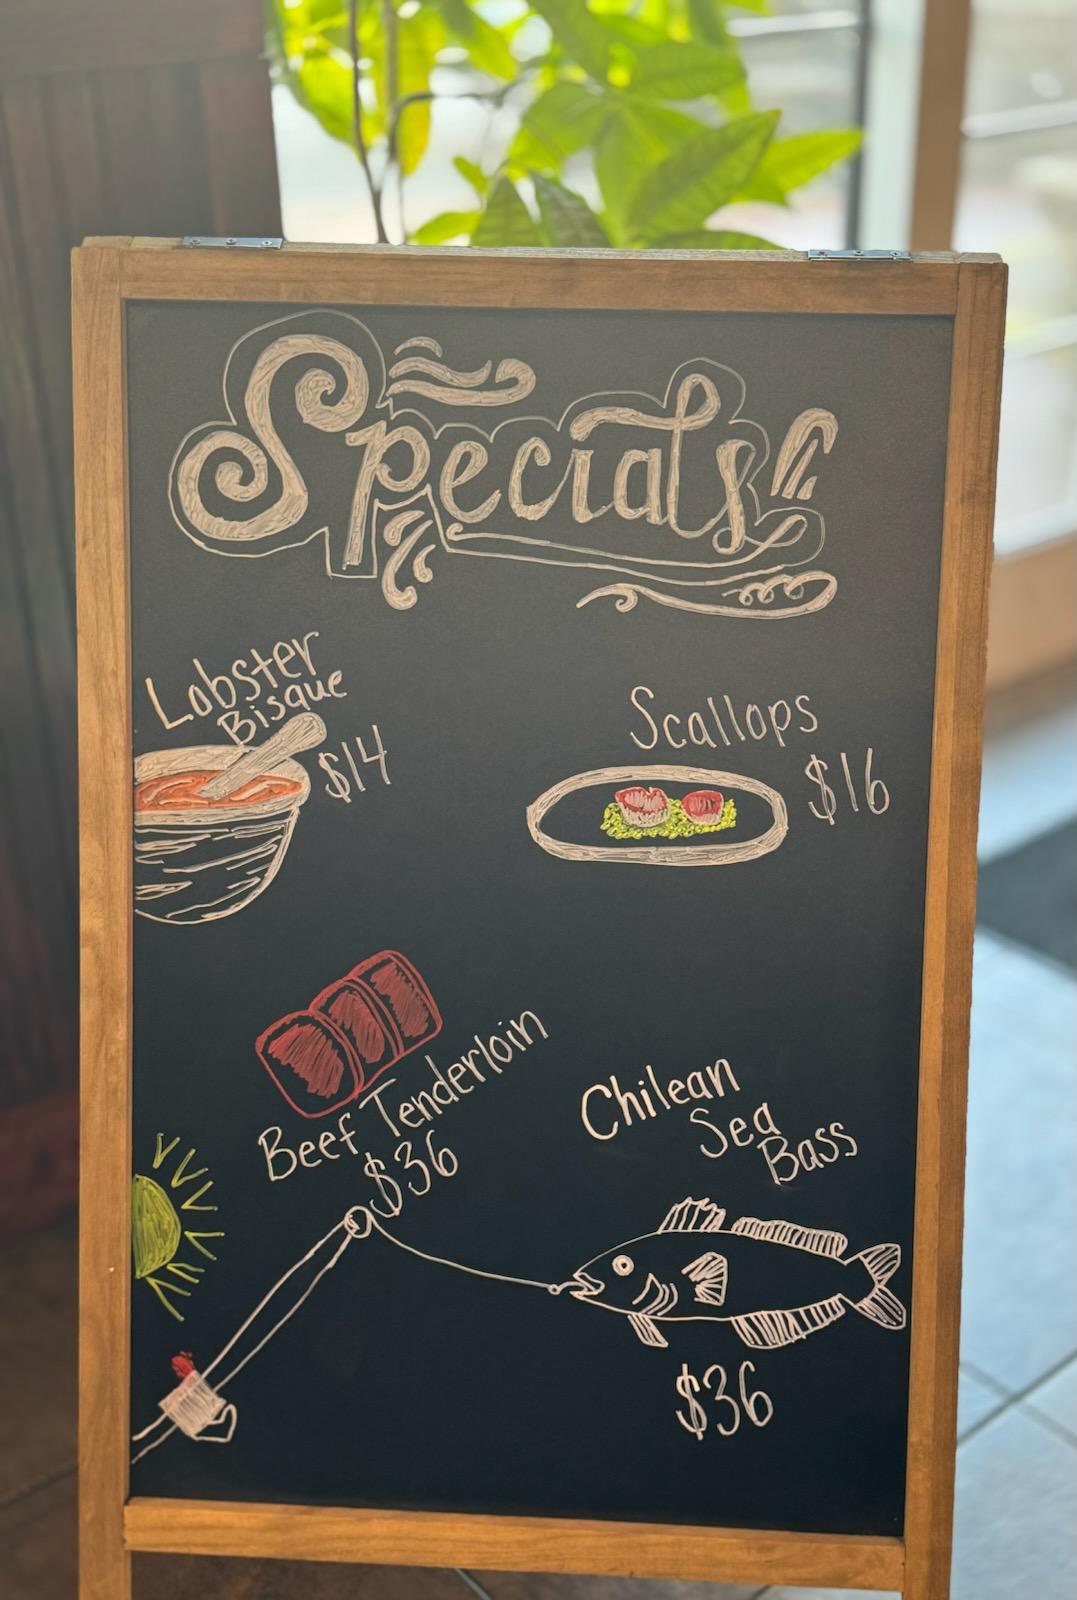 Specials
Lobster
Bisque
$14
Scallops
$16
Beef Tenderloin
$36
Chilean
Sea
Bass
$36